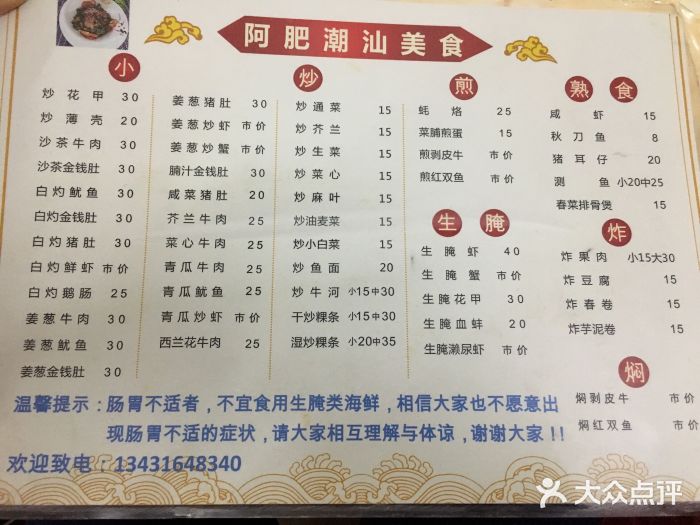 阿肥潮汕美食
小 炒
炒花甲 30
炒薄壳 20
沙茶牛肉 30
沙茶金钱肚 30
白灼鱿鱼 30
白灼金钱肚 30
白灼猪肚 30
白灼鲜虾 市价
白灼鹅肠 25
姜葱牛肉 30
姜葱鱿鱼 30
姜葱金钱肚 30
姜葱猪肚 30
姜葱炒虾 市价
姜葱炒蟹 市价
腩汁金钱肚 30
咸菜猪肚 20
芥兰牛肉 25
菜心牛肉 25
青瓜牛肉 25
青瓜鱿鱼 25
青瓜炒虾 市价
西兰花牛肉 25
炒通菜 15
炒芥兰 15
炒生菜 15
炒菜心 15
炒麻叶 15
炒油麦菜 15
炒小白菜 15
炒鱼面 20
炒牛河 小15中30
干炒粿条 小15中30
湿炒粿条 小20中35
煎
蚝烙 25
菜脯煎蛋 15
煎剥皮牛 市价
煎红双鱼 市价
生腌
生腌虾 40
生腌蟹 市价
生腌花甲 30
生腌血蚌 20
生腌濑尿虾 市价
熟食
咸虾 15
秋刀鱼 8
猪耳仔 20
测鱼 小20中25
春菜排骨煲 15
炸
炸果肉 小15大30
炸豆腐 15
炸春卷 15
炸芋泥卷 15
焖
焖剥皮牛 市价
焖红双鱼 市价
温馨提示：肠胃不适者，不宜食用生腌类海鲜，相信大家也不愿意出
现肠胃不适的症状，请大家相互理解与体谅，谢谢大家！！
欢迎致电：13431648340
大众点评